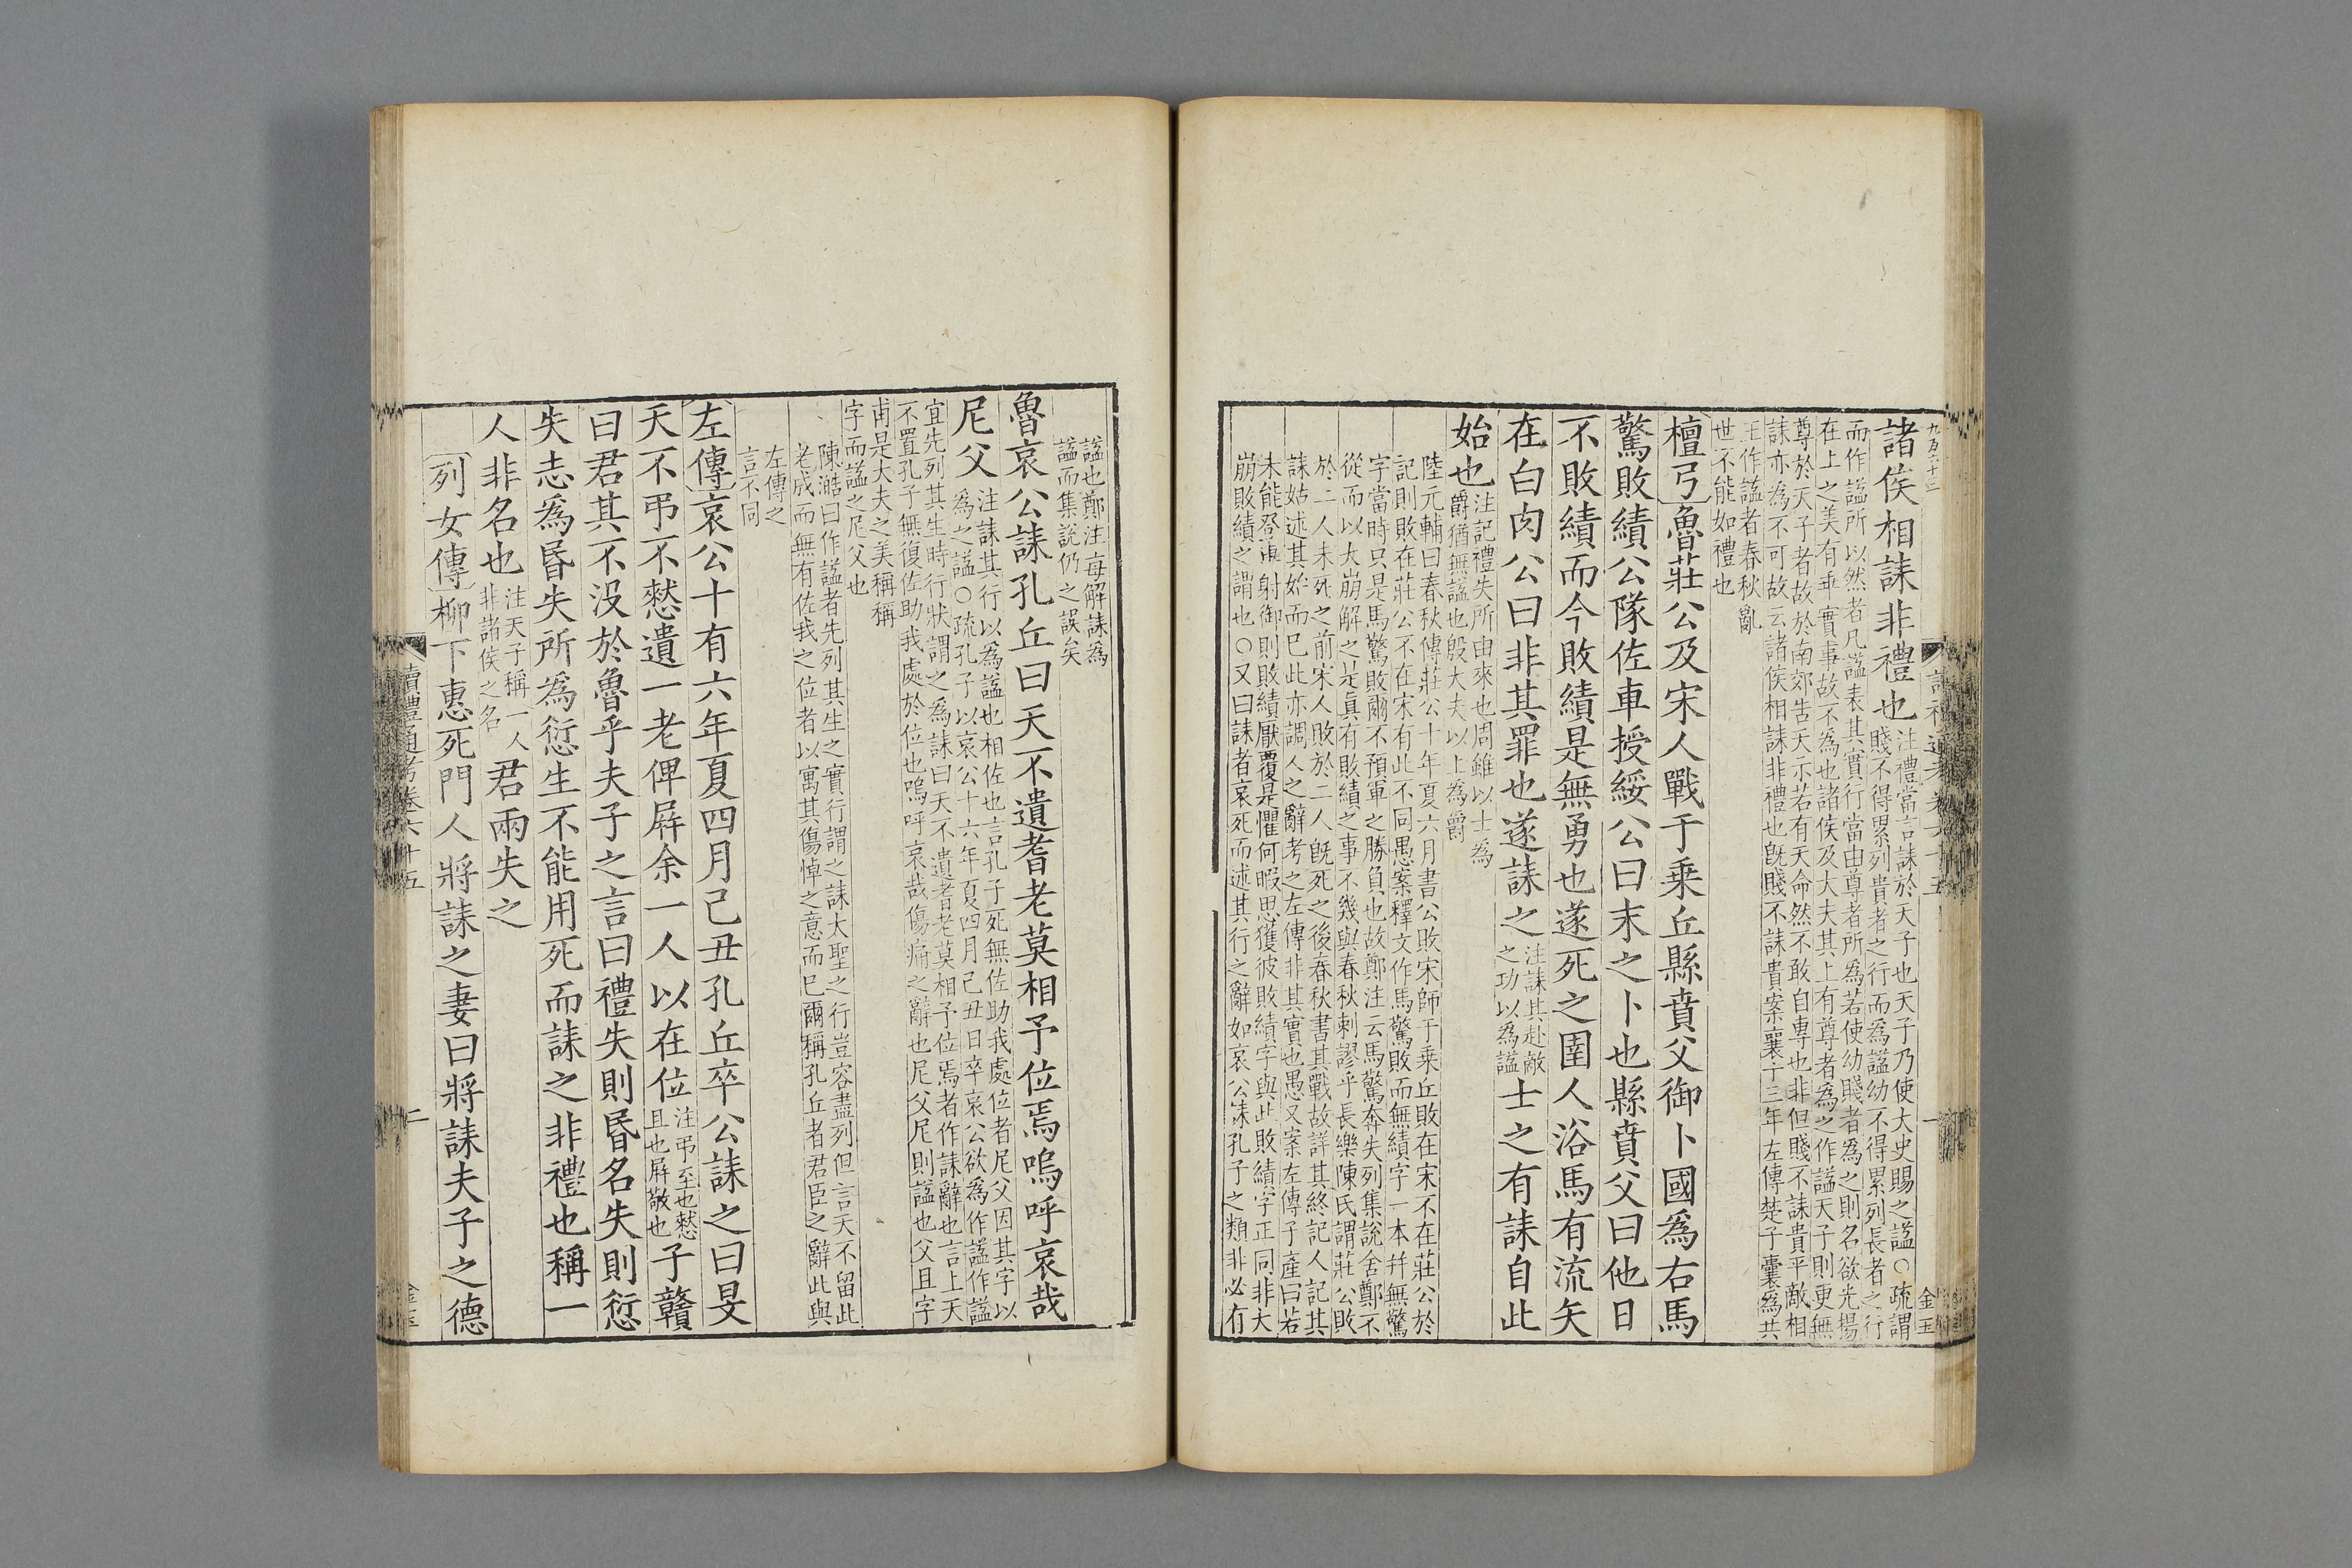 九百六十三
諸侯相誄非禮也
注禮當言誄於天子也天子乃使大史賜之謚○疏謂
賤不得累列貴者之行而爲謚幼不得累列長者之行
而作謚所以然者凡謚表其實行當由尊者所爲若使幼賤者爲之則名欲光揚
在上之美有乖實事故不爲也諸侯及大夫其上有尊者爲之作謚天子則更無
尊於天子者故於南郊告天示若有天命然不敢自專也非但賤不誄貴平敵相
誄亦爲不可故云諸侯相誄非禮也旣賤不誄貴案襄十三年左傳楚子囊爲共
王作謚者春秋亂
世不能如禮也
檀弓魯莊公及宋人戰于乘丘縣賁父御卜國爲右馬
驚敗績公隊佐車授綏公曰末之卜也縣賁父曰他日
不敗績而今敗績是無勇也遂死之圉人浴馬有流矢
在白肉公曰非其罪也遂誄之
注誄其赴敵
之功以爲謚
士之有誄自此
始也
注記禮失所由來也周雖以士爲
爵猶無謚也殷大夫以上爲爵
陸元輔曰春秋傳莊公十年夏六月書公敗宋師于乘丘敗在宋不在莊公於
記則敗在莊公不在宋有此不同愚案釋文作馬驚敗而無績字一本幷無驚
字當時只是馬驚敗爾不預軍之勝負也故鄭注云馬驚奔失列集說舍鄭不
從而以大崩解之是眞有敗績之事不幾與春秋剌謬乎長樂陳氏謂莊公敗
於二人未死之前宋人敗於二人旣死之後春秋書其戰故詳其終記人記其
誄姑述其始而已此亦調人之辭考之左傳非其實也愚又案左傳子產曰若
未能登車射御則敗績厭覆是懼何暇思獲彼敗績字與此敗績字正同非大
崩敗績之謂也○又曰誄者哀死而述其行之辭如哀公誄孔子之類非必有
謚也鄭注每解誄爲
謚而集說仍之誤矣
魯哀公誄孔丘曰天不遺耆老莫相予位焉嗚呼哀哉
尼父
注誄其行以爲謚也相佐也言孔子死無佐助我處位者尼父因其字以
爲之謚○疏孔子以哀公十六年夏四月己丑日卒哀公欲爲作謚作謚
宜先列其生時行狀謂之爲誄曰天不遺耆老莫相予位焉者作誄辭也言上天
不置孔子無復佐助我處於位也嗚呼哀哉傷痛之辭也尼父尼則謚也父且字
甫是大夫之美稱稱
字而謚之尼父也
陳澔曰作謚者先列其生之實行謂之誄大聖之行豈容盡列但言天不留此
老成而無有佐我之位者以寓其傷悼之意而已爾稱孔丘者君臣之辭此與
左傳之
言不同
左傳哀公十有六年夏四月己丑孔丘卒公誄之曰旻
天不弔不憖遺一老俾屛余一人以在位
注弔至也憖
且也屛敝也
子贛
曰君其不没於魯乎夫子之言曰禮失則昬名失則愆
失志爲昬失所爲愆生不能用死而誄之非禮也稱一
人非名也
注天子稱一人
非諸侯之名
君兩失之
列女傳柳下惠死門人將誄之妻曰將誄夫子之德
讀禮通考卷六十五
二